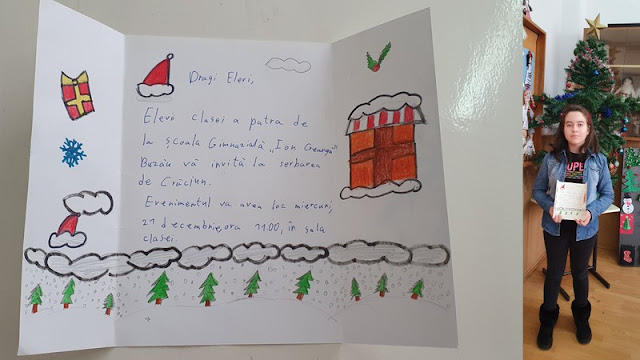 Dragi Elevi,
Elevii clasei a patra de
la școala Gimnazială „Ion Creangă"
Buzău vă invită la serbarea
de Crăciun.
Evenimentul va avea loc miercuri,
21 decembrie, ora 11.00, în sala
clasei.